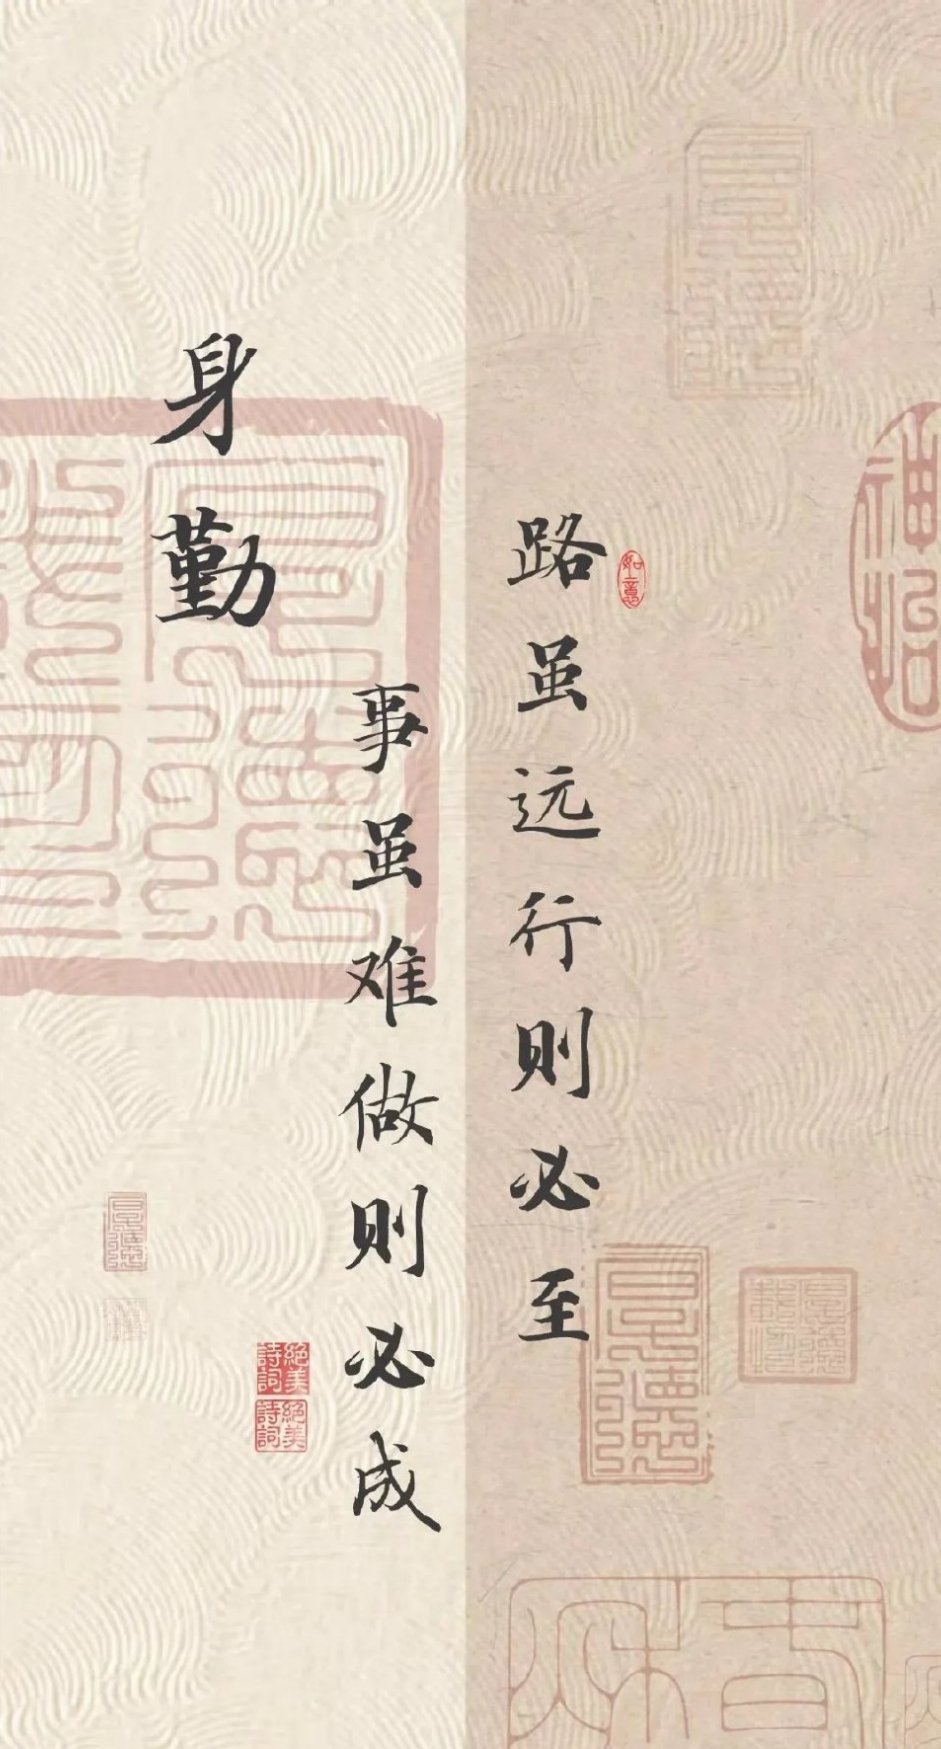 路虽远行则必至
事虽难做则必成
身勤
如意
神怡
絕美詩詞
絕美詩詞